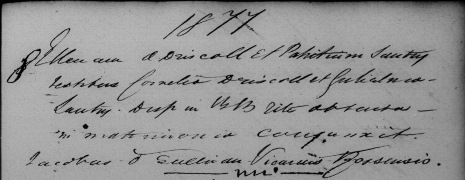 1877
8 Ellenam O Driscoll et Patritium Santry
testibus Cornelio Driscoll et Gulielmo
Santry. Disp in Bis rite obtenta
in matrimonio conjunxit.
Jacobus O Sullivan Vicarius Rossensis.